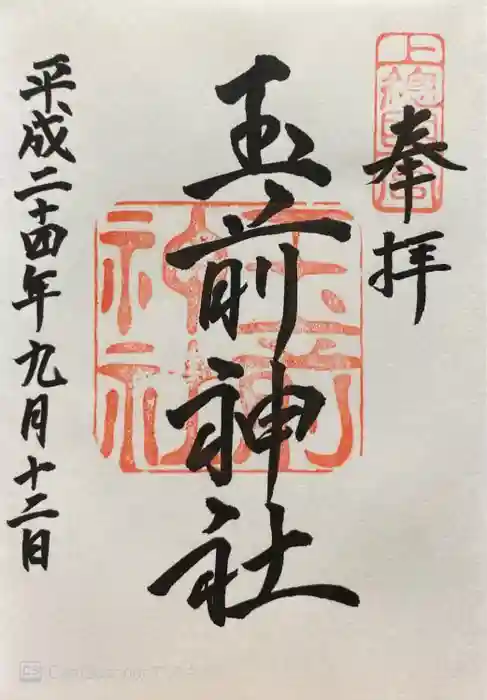 奉拝
玉前神社
平成二十四年九月十二日
玉前
神社